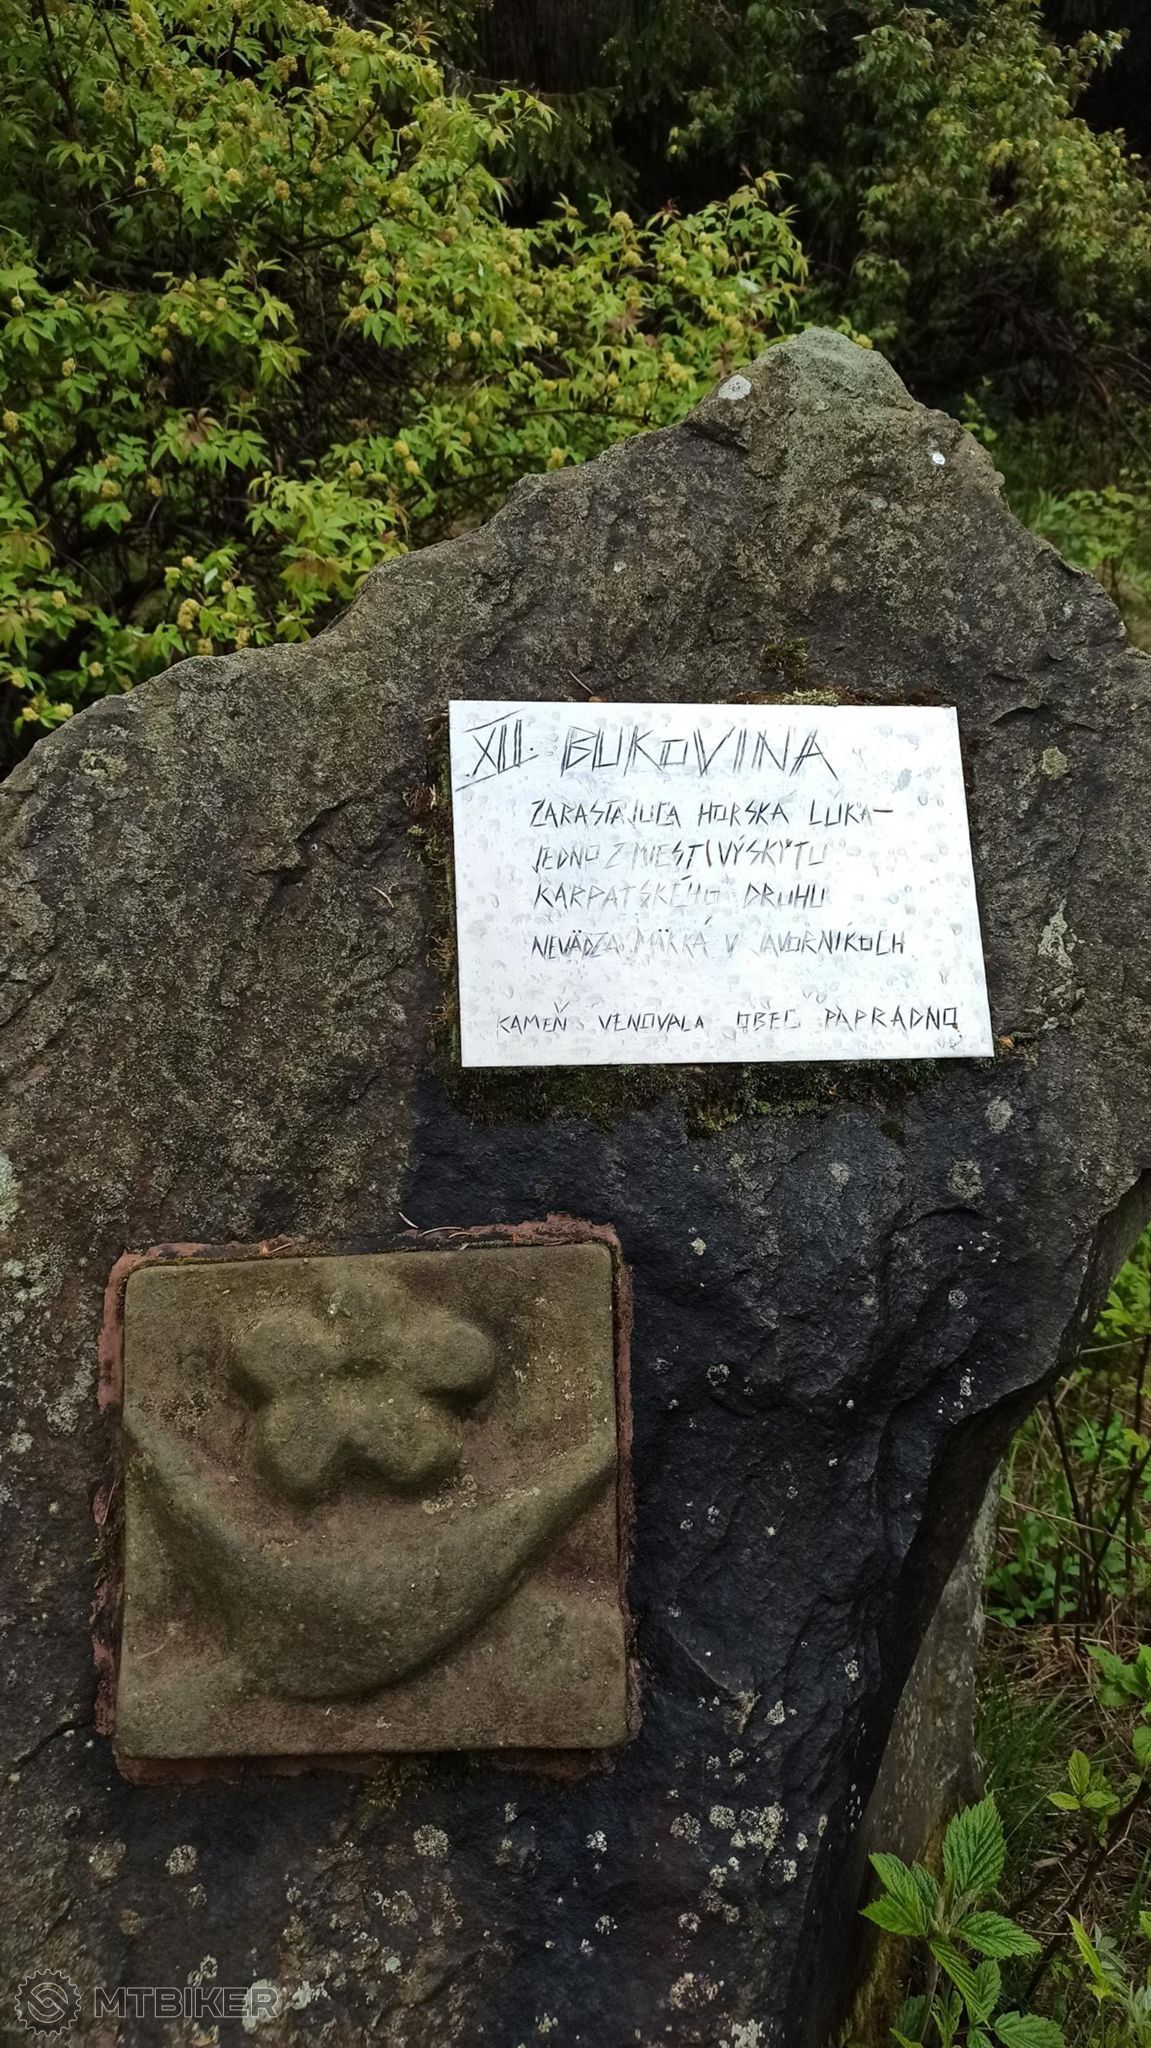 XII. BUKOVINA
ZARASTAJÚCA HORSKÁ LÚKA-
JEDNO Z MIEST VÝSKYTU
KARPATSKÉHO DRUHU
NEVÄDZA MÄKKÁ V JAVORNÍKOCH
KAMEŇ VENOVALA OBEC PAPRADNO
MTBIKER